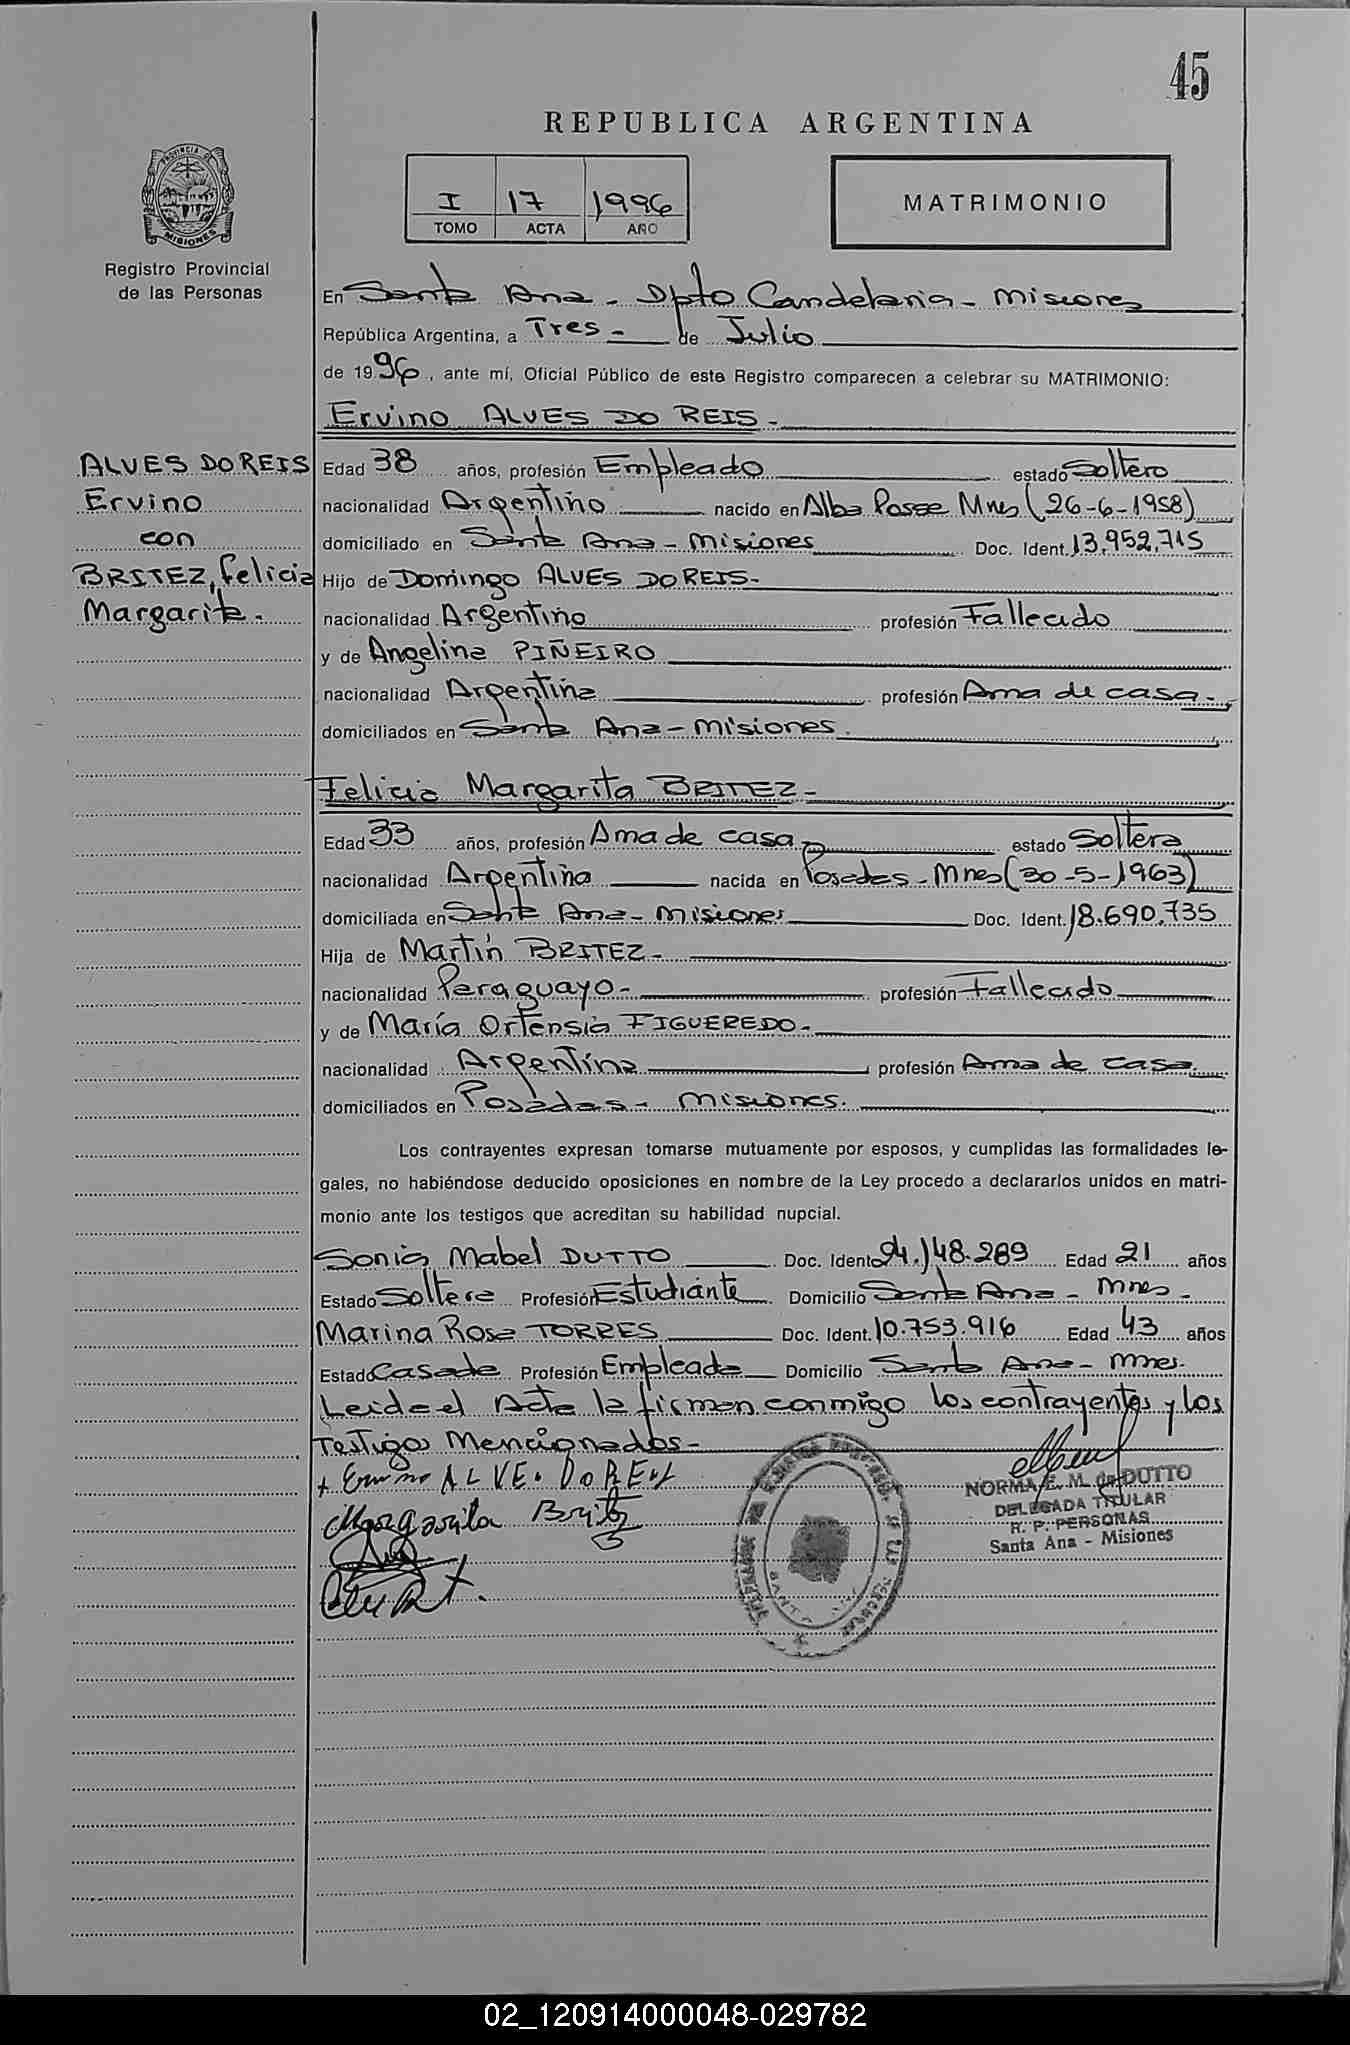 45
REPUBLICA ARGENTINA
I 17 1996
TOMO ACTA AÑO
MATRIMONIO
PROVINCIA DE
MISIONES
Registro Provincial
de las Personas
En Santa Ana - Dpto Candelaria - Misiones
República Argentina, a Tres - de Julio
de 1996, ante mí, Oficial Público de este Registro comparecen a celebrar su MATRIMONIO:
Ervino ALVES DO REIS -
ALVES DO REIS
Ervino
con
BRITEZ, Felicia
Margarita.
Edad 38 años, profesión Empleado estado Soltero
nacionalidad Argentino nacido en Alba Posse Mnes (26-6-1958)
domiciliado en Santa Ana - Misiones Doc. Ident. 13.952.715
Hijo de Domingo ALVES DO REIS -
nacionalidad Argentino profesión Fallecido
y de Angelina PIÑEIRO
nacionalidad Argentina profesión Ama de casa -
domiciliados en Santa Ana - Misiones.
Felicia Margarita BRITEZ -
Edad 33 años, profesión Ama de casa estado Soltera
nacionalidad Argentina nacida en Posadas - Mnes (30-5-1963)
domiciliada en Santa Ana - Misiones Doc. Ident. 18.690.735
Hija de Martín BRITEZ -
nacionalidad Paraguayo - profesión Fallecido
y de María Ortensia FIGUEREDO -
nacionalidad Argentina profesión Ama de casa.
domiciliados en Posadas - Misiones.
Los contrayentes expresan tomarse mutuamente por esposos, y cumplidas las formalidades le-
gales, no habiéndose deducido oposiciones en nombre de la Ley procedo a declararlos unidos en matri-
monio ante los testigos que acreditan su habilidad nupcial.
Sonia Mabel DUTTO Doc. Ident. 24.148.289 Edad 21 años
Estado Soltera Profesión Estudiante Domicilio Santa Ana - Mnes -
Marina Rosa TORRES Doc. Ident. 10.753.916 Edad 43 años
Estado Casada Profesión Empleada Domicilio Santa Ana - Mnes.
Leida el Acta la firman conmigo los contrayentes y los
Testigos Mencionados -
ALVE. DO REI
Margarita Britez
NORMA E. M. de DUTTO
DELEGADA TITULAR
R. P. PERSONAS
Santa Ana - Misiones
02_120914000048-029782